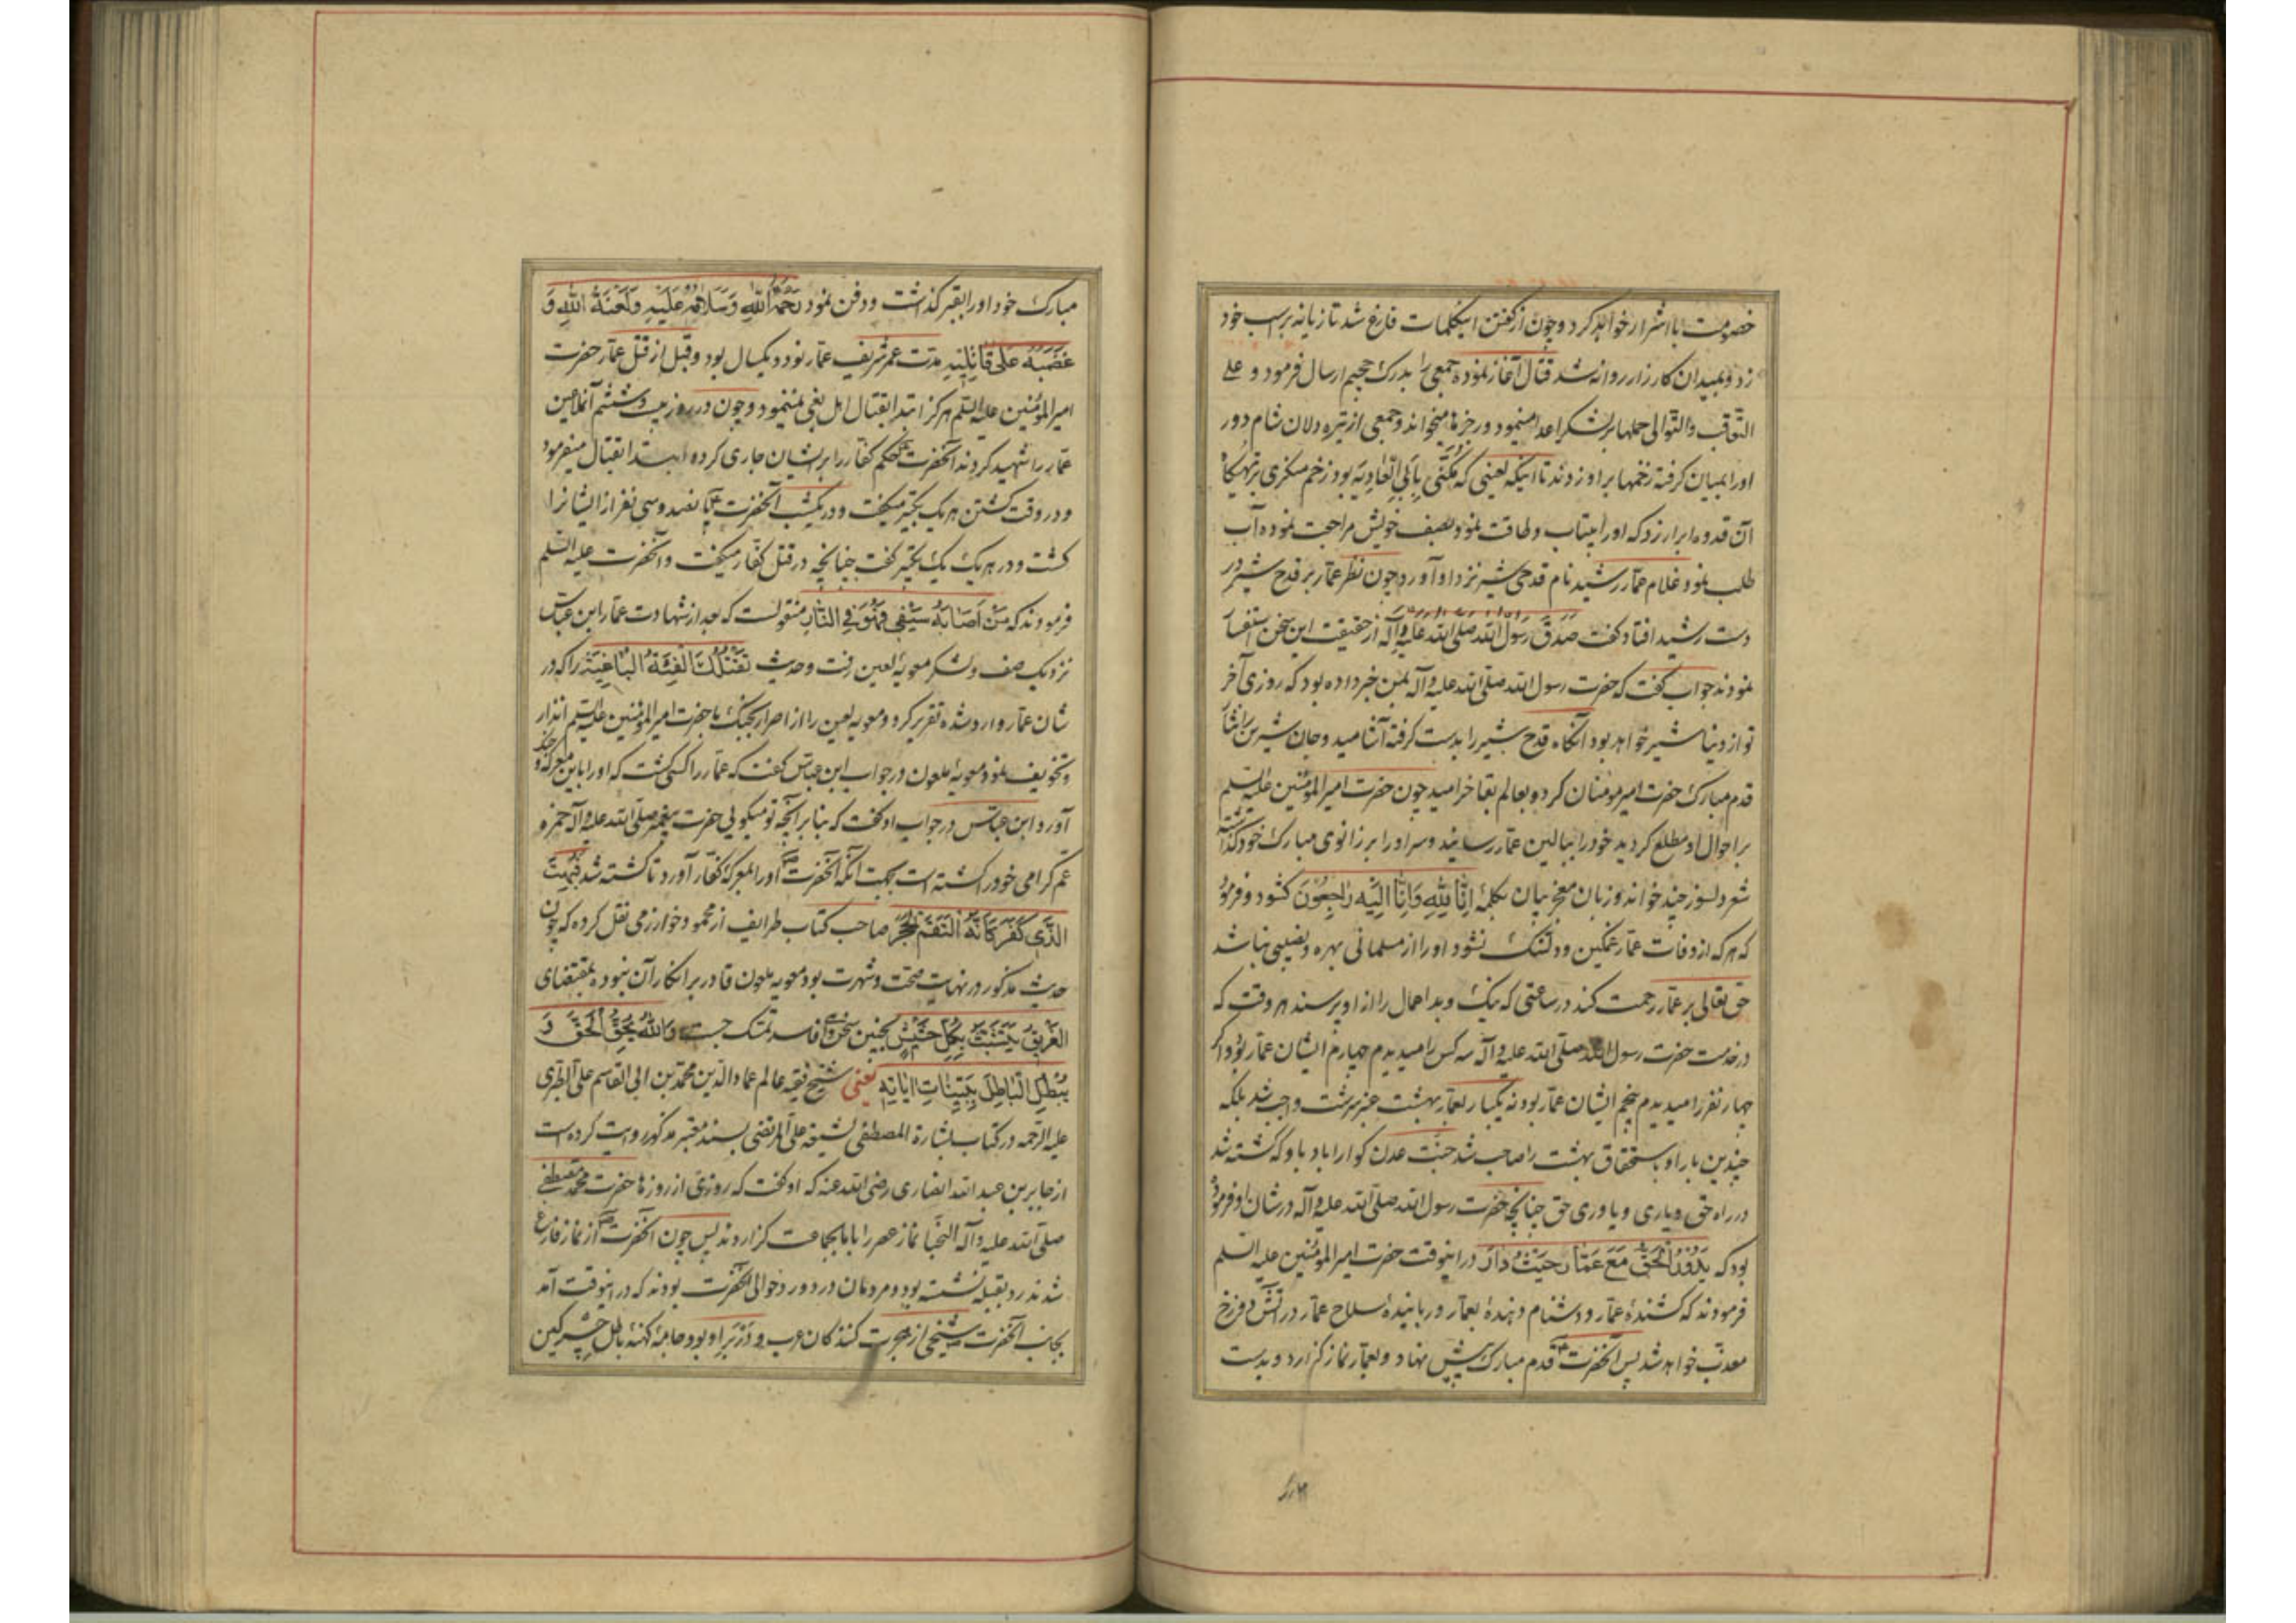 خصومت با اشرار خواهد کرد و چون از گفتن اینکلمات فارغ شد تازیانه بر اسب خود
زد و بمیدان کارزار روانه شد قتال آغاز نموده جمعی را بدرک جحیم ارسال فرمود و علی
التعاقب والتوالی حملها بر لشکر اعدا مینمود و رجزها میخواند و جمعی از تیره دلان شام دور
او را بمیان گرفته زخمها بر او زدند تا اینکه لعینی که مکنی بابی العادیه بود زخم منکری بر تهیگاه
آن قدوه ابرار زد که او را بیتاب و طاقت نمود بصف خویش مراجعت نموده آب
طلب نمود غلام عمار رشید نام قدحی شیر نزد او آورد و چون نظر عمار بر قدح شیر در
دست رشید افتاد گفت صدق رسول الله صلی الله علیه و آله از حقیقت این سخن استفسار
نمودند جواب گفت که حضرت رسول الله صلی الله علیه و آله بمن خبر داده بود که روزی آخر
تو از دنیا شیر خواهد بود آنگاه قدح شیر را بدست گرفته آشامید و جان شیرین را نثار
قدم مبارک حضرت امیر مومنان کرد و بعالم بقا خرامید چون حضرت امیر المؤمنین علیه السلم
بر احوال او مطلع گردید خود را ببالین عمار رسانید و سر او را بر زانوی مبارک خود گذاشته
شعر دلسوز چند خواند و زبان معجز بیان بکلمهٔ اِنّا لِلّهِ وَاِنّا اِلَیْهِ راجِعُونَ کشود و فرمود
که هر که از وفات عمار غمگین و دلتنگ نشود او را از مسلمانی بهره و نصیبی نباشد
حق تعالی بر عمار رحمت کند در ساعتی که نیک و بد اعمال را از او پرسند هر وقت که
در خدمت حضرت رسول الله صلی الله علیه و آله سه کس را میدیدم چهارم ایشان عمار بود و اگر
چهار نفر را میدیدم پنجم ایشان عمار بود نه یکبار بعمار بهشت عنبر سرشت واجب شد بلکه
چندین بار او باستحقاق بهشت را صاحب شد جنت عدن گوارا باد باو که کشته شد
در راه حق و یاری و یاوری حق چنانچه حضرت رسول الله صلی الله علیه و آله در شان او فرموده
بود که یَدُورُ الحَقُّ مَعَ عَمّار حَیْثُ دارَ در اینوقت حضرت امیر المؤمنین علیه السلم
فرمودند که کشندهٔ عمار و دشنام دهندهٔ بعمار و ربایندهٔ سلاح عمار در آتش دوزخ
معذب خواهد شد پس آنحضرت قدم مبارک پیش نهاد و بعمار نماز گزارد و بدست
مبارک خود او را بقبر گذاشت و دفن نمود رَحْمَةُ اللهِ وَسَلامُهُ عَلَیْهِ وَلَعْنَةُ اللهِ وَ
غَضَبُهُ عَلی قاتِلِیهِ مدت عمر شریف عمار نود و یکسال بود و قبل از قتل عمار حضرت
امیر المؤمنین علیه السلم هرگز ابتدا بقتال اهل بغی نمینمود و چون در روز بیست و ششم آنملاعین
عمار را شهید کردند آنحضرت حکم کفار را بر ایشان جاری کرده ابتدا بقتال میفرمود
و در وقت کشتن هر یک تکبیر میگفت و در یکشب آنحضرت پانصد و سی نفر از ایشانرا
کشت و در هر یک یک تکبیر گفت چنانچه در قتل کفار میگفت و آنحضرت علیه السلم
فرمودند که مَنْ اَصابَهُ سَیْفی فَهُوَ فِی النّارِ منقولست که بعد از شهادت عمار ابن عباس
نزدیک صف لشکر معویهٔ لعین رفت و حدیث تَقْتُلُکَ الفِئَةُ الباغِیَةُ را که در
شان عمار وارد شده تقریر کرد و معویه لعین را از اصرار بجنگ با حضرت امیر المؤمنین علیه السلم انذار
و تخویف نمود معویهٔ ملعون در جواب ابن عباس گفت که عمار را کسی کشت که او را باین معرکه
آورد ابن عباس در جواب او گفت که بنا بر آنچه تو میگوئی حضرت پیغمبر صلی الله علیه و آله حمزه
عم گرامی خود را کشته است بجهت آنکه آنحضرت او را بمعرکهٔ کفار آورد تا کشته شد فَبُهِتَ
الَّذی کَفَرَ کَاَنَّهُ التَقَمَ الحَجَرَ صاحب کتاب طرایف از محمود خوارزمی نقل کرده که چون
حدیث مذکور در نهایت صحت و شهرت بود معویه ملعون قادر بر انکار آن نبوده بمقتضای
الغَریقُ یَتَشَبَّثُ بِکُلِّ حَشیشٍ بچنین سخن فاسد تمسک جست وَاللهُ یُحِقُّ الحَقَّ وَ
یُبْطِلُ الباطِلَ بِبَیِّناتِ ایاتِهِ یعنی شیخ فقیه عالم عماد الدین محمد بن ابی القاسم علی الطبری
علیه الرحمه در کتاب بشارة المصطفی لشیعة علی المرتضی بسند معتبر مذکور روایت کرده است
از جابر بن عبد الله انصاری رضی الله عنه که او گفت که روزی از روزها حضرت محمد مصطفی
صلی الله علیه و آله النجبا نماز عصر را با ما بجماعت گزاردند پس چون آنحضرت از نماز فارغ
شدند رو بقبله نشسته بود و مردمان در دور و حوالی آنحضرت بودند که در اینوقت آمد
بجانب آنحضرت شیخی از هجرت کنندکان عرب و در بر او بود جامهٔ کهنه باطل چرکین